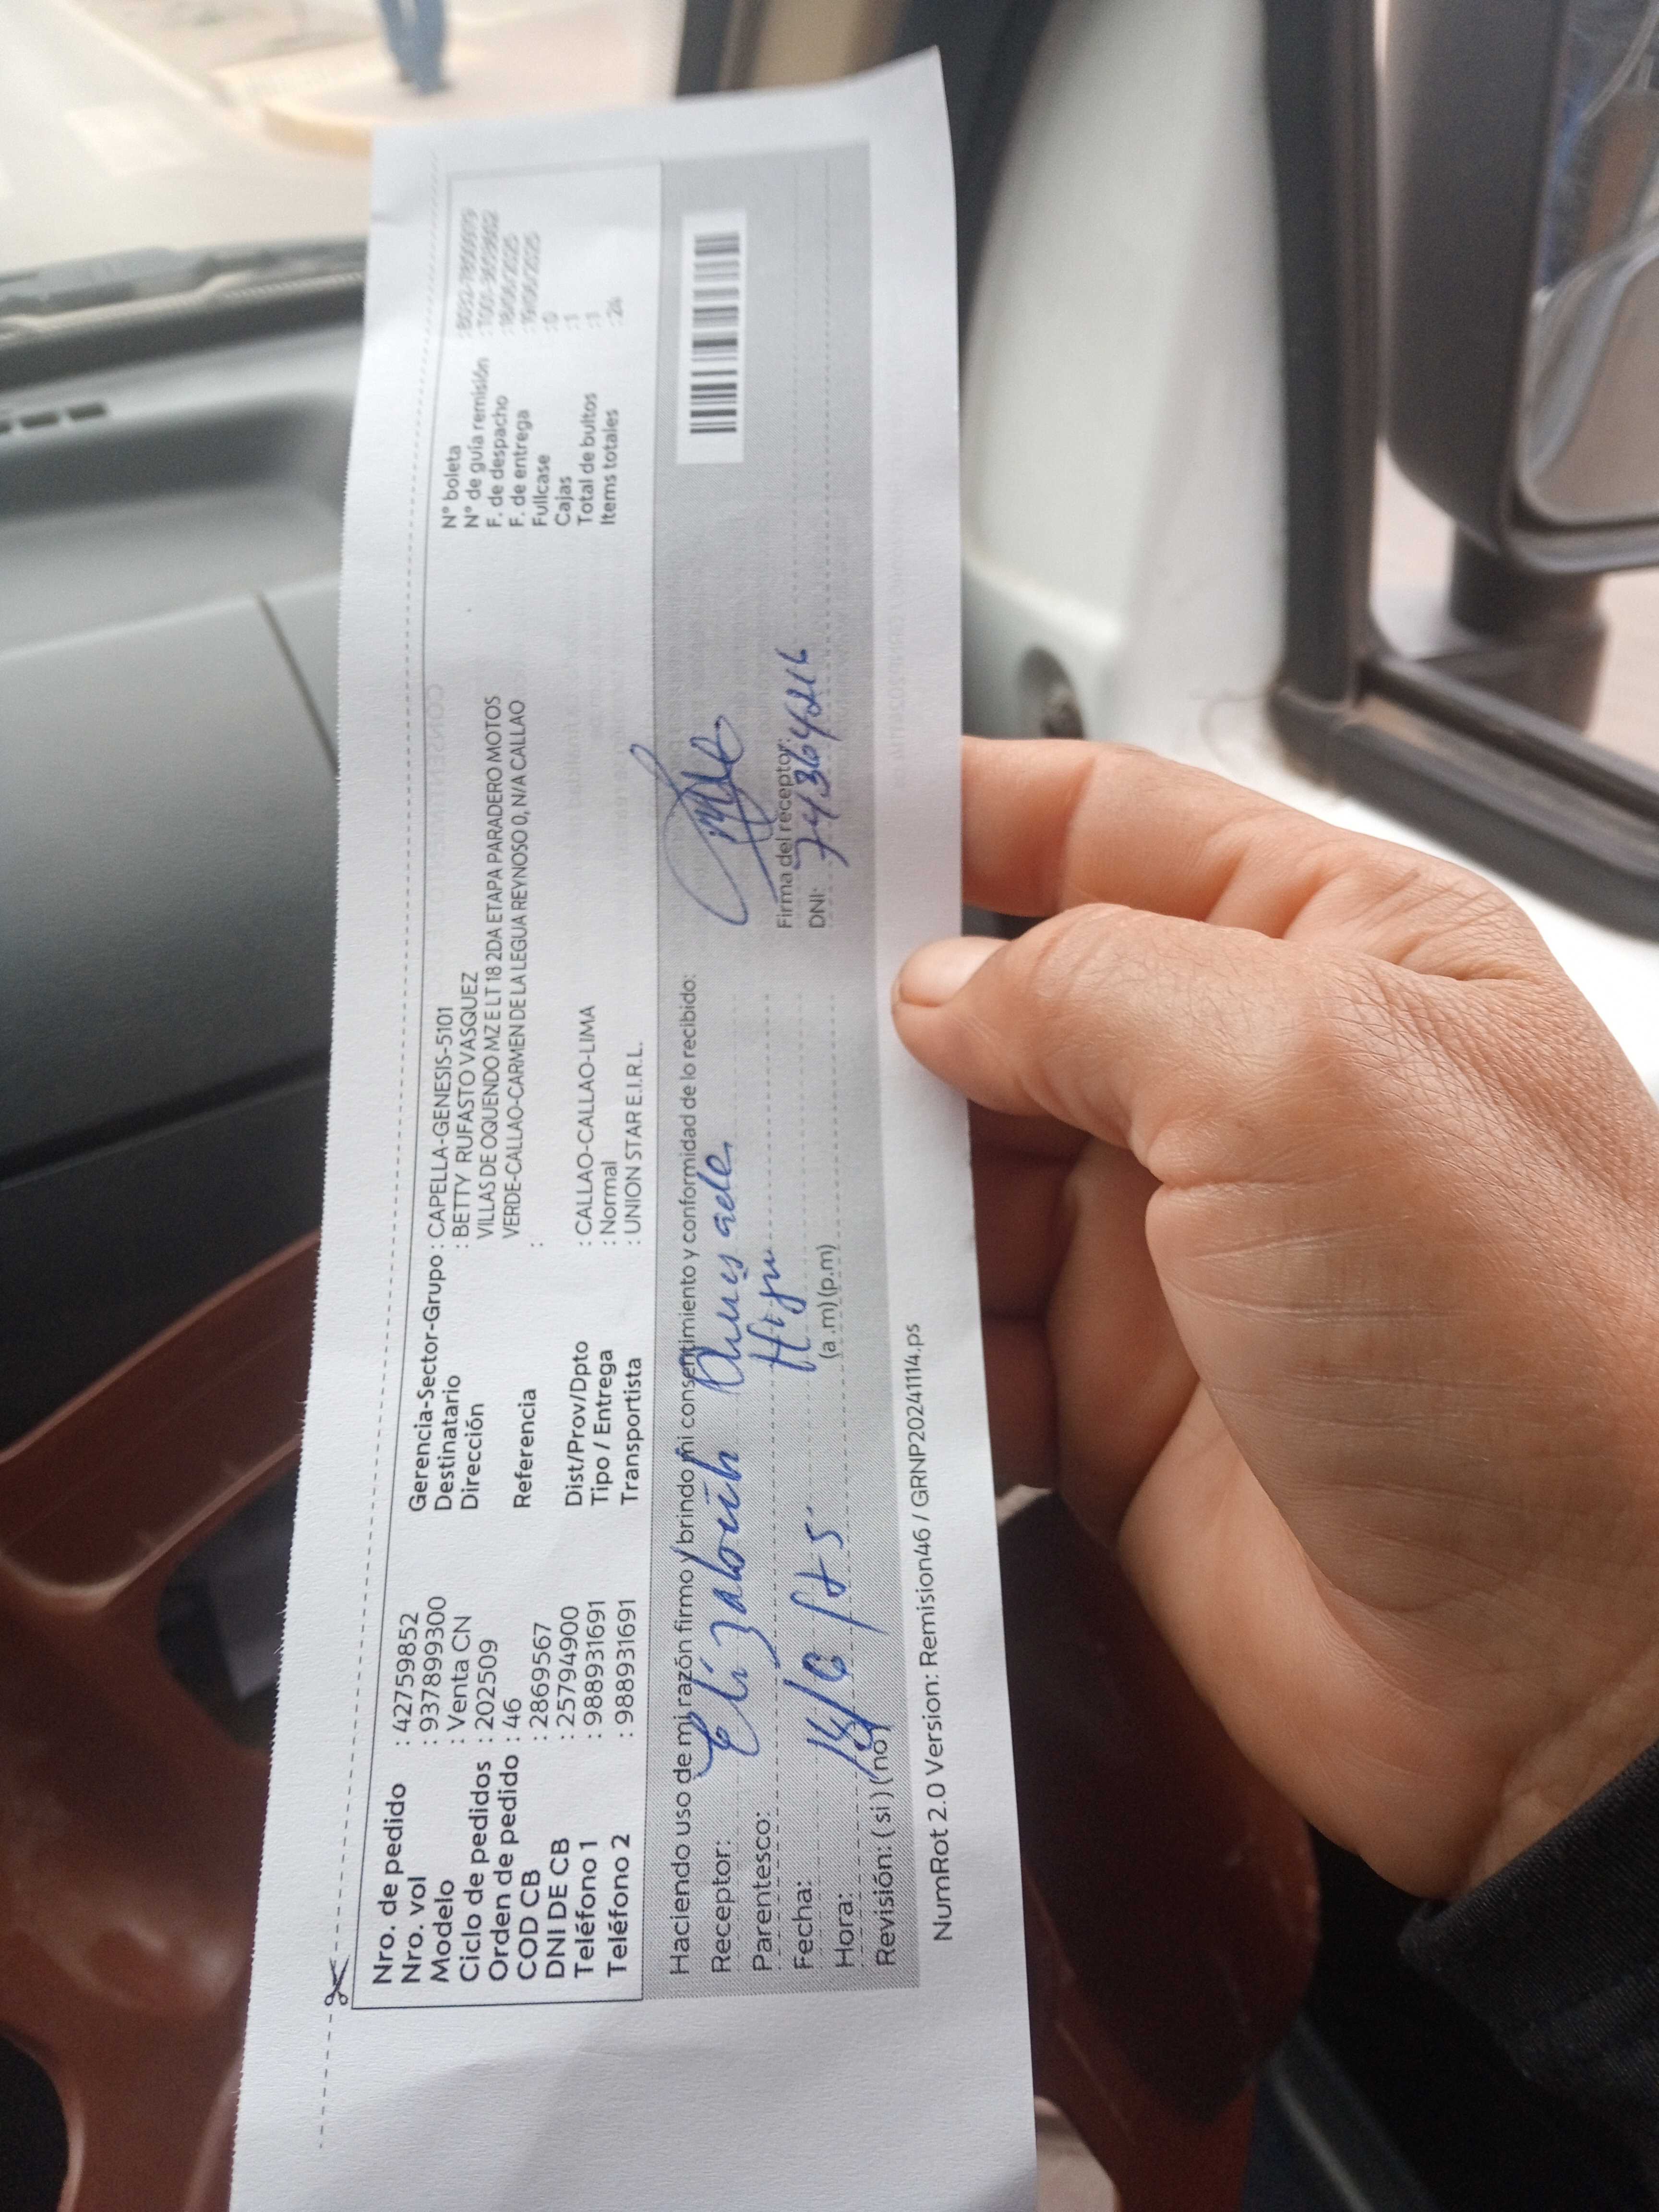 Nro. de pedido : 42759852
Nro. vol : 937899300
Modelo : Venta CN
Ciclo de pedidos : 202509
Orden de pedido : 46
COD CB : 2869567
DNI DE CB : 25794900
Teléfono 1 : 988931691
Teléfono 2 : 988931691
Gerencia-Sector-Grupo : CAPELLA-GENESIS-5101
Destinatario : BETTY RUFASTO VASQUEZ
Dirección VILLAS DE OQUENDO MZ E LT 18 2DA ETAPA PARADERO MOTOS
VERDE-CALLAO-CARMEN DE LA LEGUA REYNOSO 0, N/A CALLAO
Referencia :
Dist/Prov/Dpto : CALLAO-CALLAO-LIMA
Tipo / Entrega : Normal
Transportista : UNION STAR E.I.R.L.
N° boleta
N° de guía remisión
F. de despacho : 18/06/2025
F. de entrega : 19/06/2025
Fullcase : 0
Cajas : 1
Total de bultos : 1
Items totales : 24
Haciendo uso de mi razón firmo y brindo mi consentimiento y conformidad de lo recibido:
Receptor: Elizabeth
Parentesco:
Fecha:
Hora: (a .m) (p.m)
Revisión: ( si ) ( no )
Firma del receptor:
DNI:
NumRot 2.0 Version: Remision46 / GRNP20241114.ps